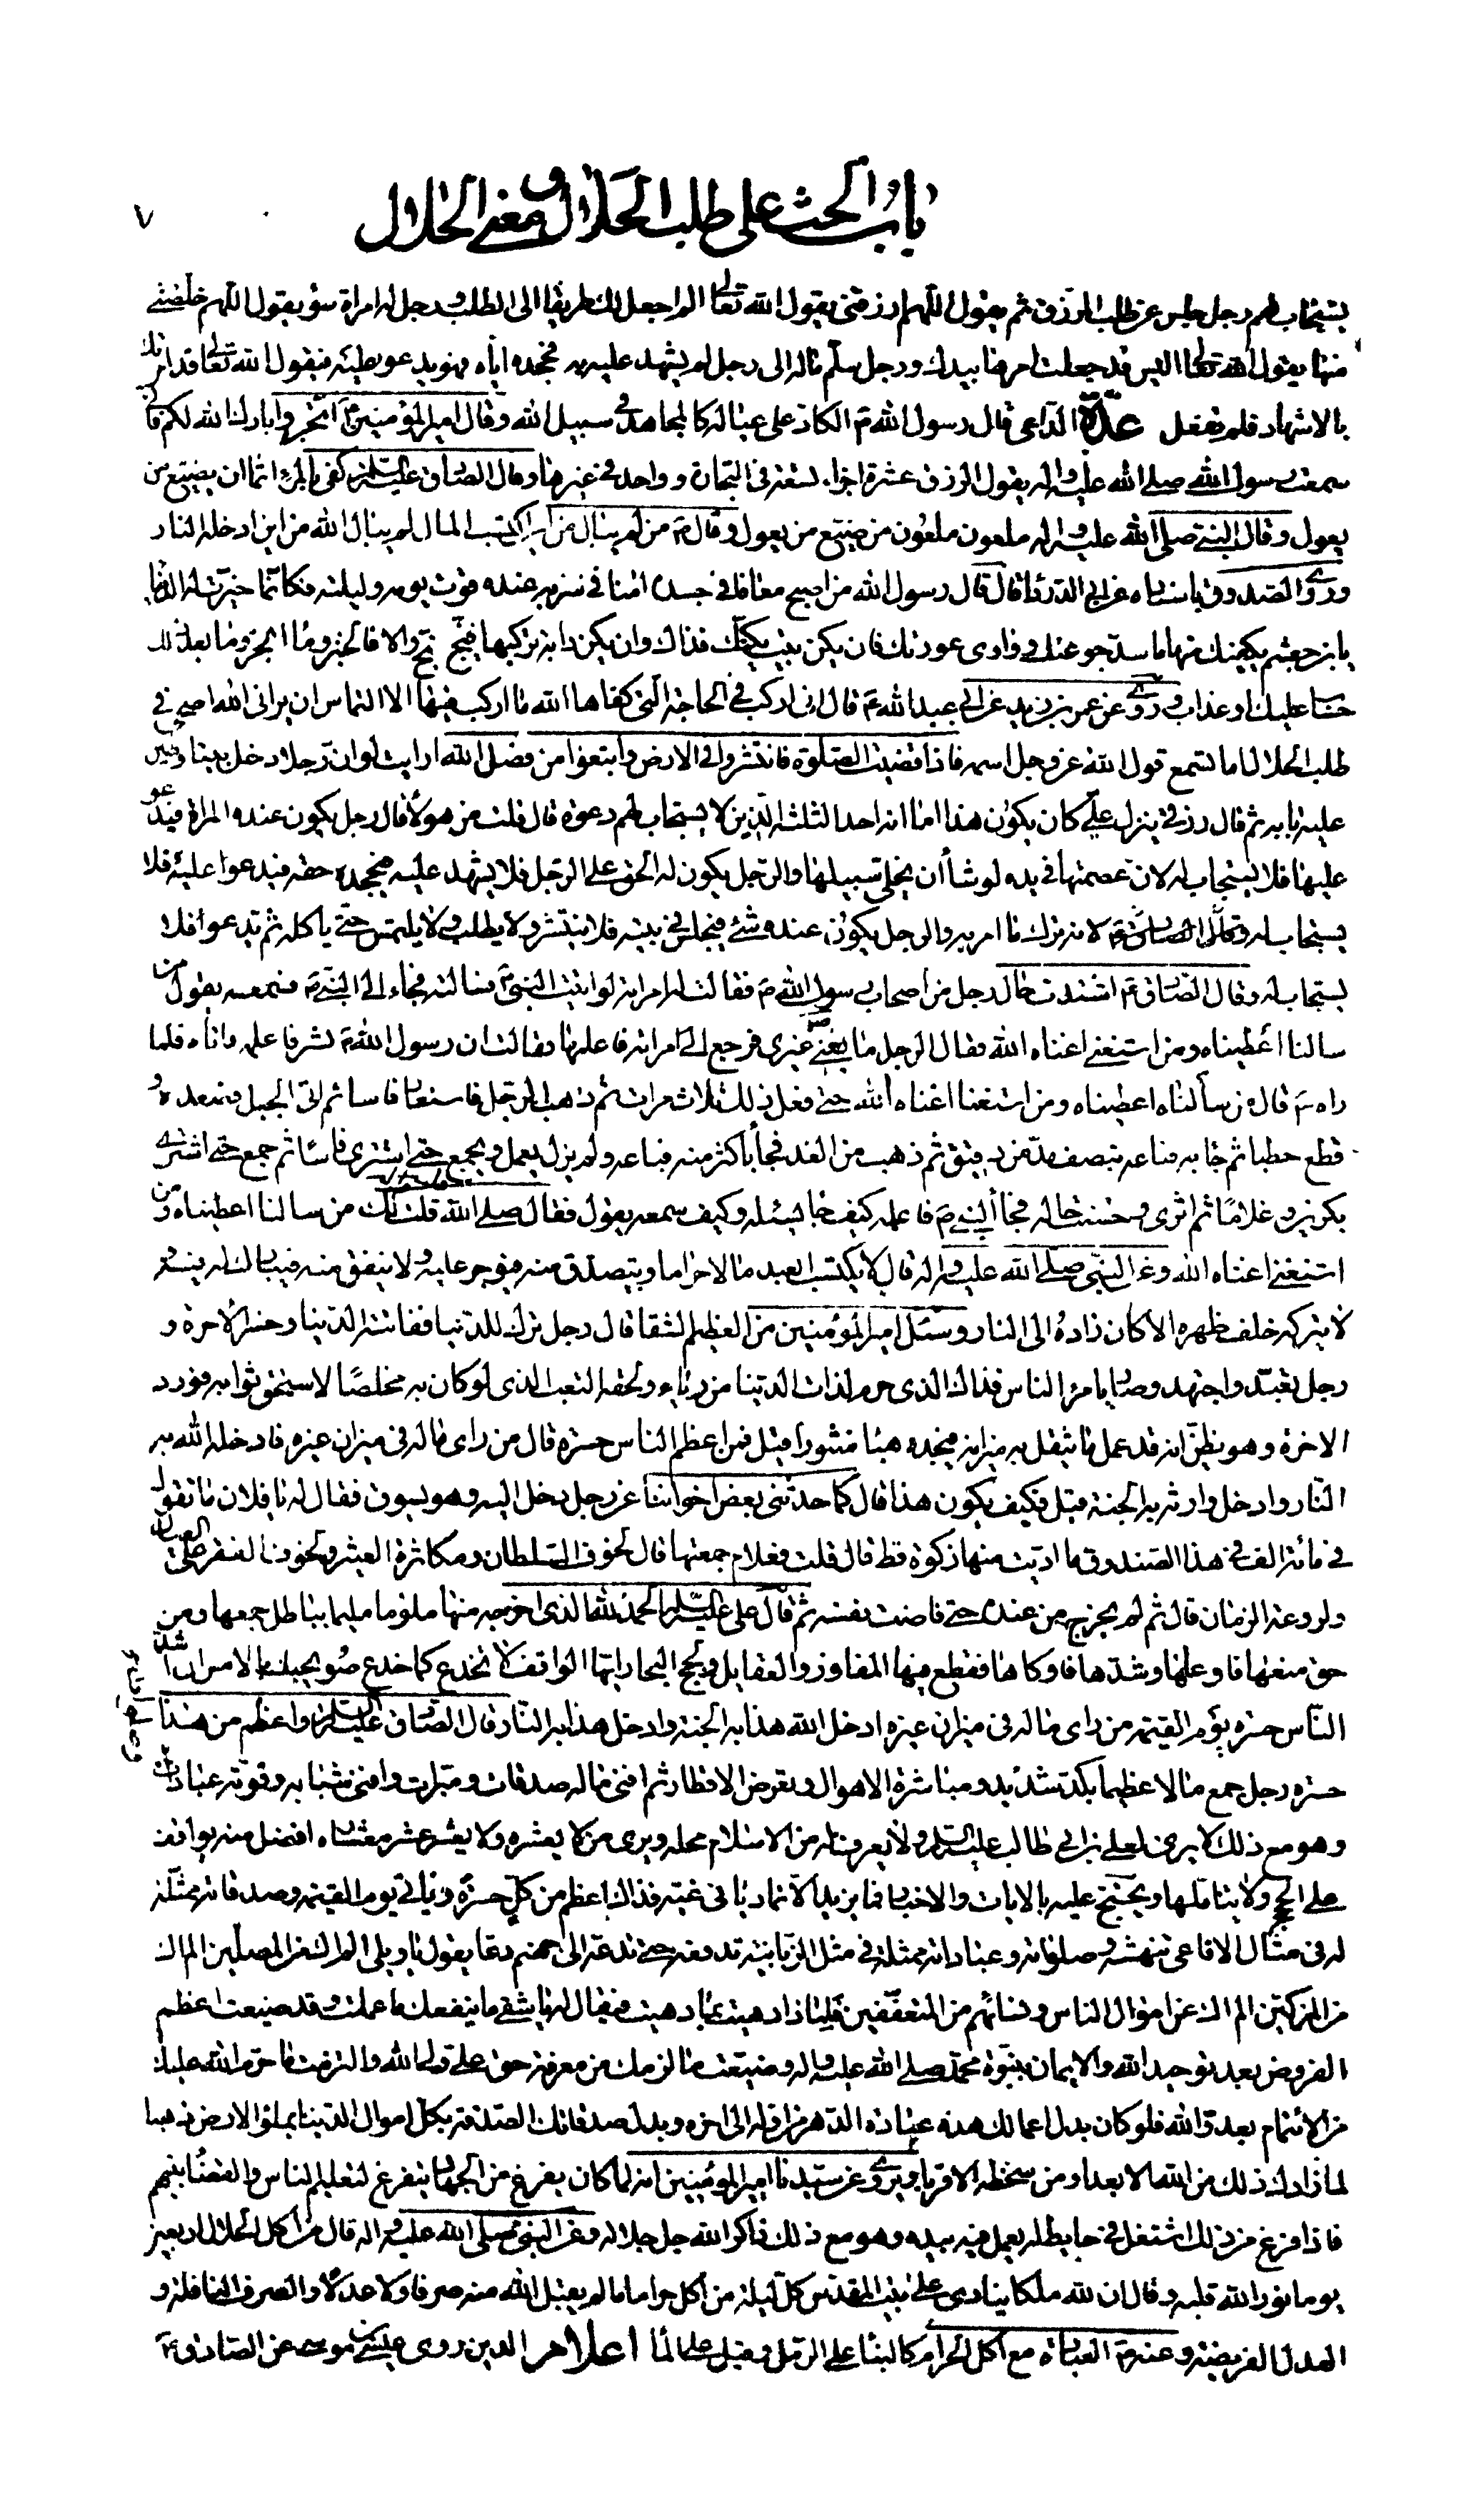 باب الحث على طلب الحلال و معنى الحلال
٧
يستجاب لهم رجل جلس عن طلب الرزق ثم يقول اللهم ارزقنى يقول الله تعالى الم اجعل لك طريقا الى الطلب و رجل له امراة سوء يقول اللهم خلصنى
منها يقول الله تعالى اليس قد جعلت امرها بيدك و رجل سلم ماله الى رجل لم يشهد عليه به فجحده اياه فهو يدعو عليه فيقول الله تعالى قد امرتك
بالاشهاد فلم تفعل عدة الداعى قال رسول الله ص الكاد على عياله كالمجاهد فى سبيل الله و قال امير المؤمنين ع اتجروا بارك الله لكم فانى
سمعت رسول الله صلى الله عليه و اله يقول الرزق عشرة اجزاء تسعة فى التجارة و واحد فى غيرها و قال الصادق عليه السلام كفى بالمرء اثما ان يضيع من
يعول و قال النبى صلى الله عليه و اله ملعون ملعون من ضيع من يعول و قال ص من لم يبال من اين اكتسب المال لم يبال الله من اين ادخله النار
و روى الصدوق باسناده عن ابى الدرداء قال قال رسول الله من اصبح معافا فى جسده امنا فى سربه عنده قوت يومه و ليلته فكانما خيرت له الدنيا
يا بن جعشم يكفيك منها ما سد جوعتك و وارى عورتك فان يكن بيت يكنك فذاك و ان يكن دابة تركبها فبخ بخ و الا فالخبز و ماء الجر و ما بعد ذلك
حساب عليك او عذاب و روى عن عمر بن يزيد عن ابى عبد الله ع قال انى اركب فى الحاجة التى كفاها الله ما اركب فيها الا التماس ان يرانى الله اضحى فى
طلب الحلال اما تسمع قول الله عز و جل اسمه فاذا قضيت الصلوة فانتشروا فى الارض و ابتغوا من فضل الله ارايت لو ان رجلا دخل بيتا و طين
عليه بابه ثم قال رزقى ينزل على كان يكون هذا اما انه احد الثلثة الذين لا يستجاب لهم دعوة قال قلت من هولاء قال رجل يكون عنده المراة فيدعو
عليها فلا يستجاب له لان عصمتها فى يده لو شاء ان يخلى سبيلها و الرجل يكون له الحق على الرجل فلا يشهد عليه فيجحده حقه فيدعوا عليه فلا
يستجاب له لانه ترك ما امر به و الرجل يكون عنده شئ فيجلس فى بيته فلا ينتشر و لا يطلب و لا يلتمس حتى ياكله ثم يدعوا فلا
يستجاب له و قال الصادق ع اشتدت حال رجل من اصحاب رسول الله ص فقالت له امراته لو اتيت النبى ص فسالته فجاء الى النبى ص فسمعه يقول من
سالنا اعطيناه و من استغنى اغناه الله فقال الرجل ما يعنى غيرى فرجع الى امراته فاعلمها فقالت ان رسول الله ص بشر فاعلمه فاتاه فلما
راه ص قال من سألنا اعطيناه و من استغنا اغناه الله حتى فعل ذلك ثلاث مرات ثم ذهب الرجل فاستعار فاسا ثم اتى الجبل فصعده و
قطع حطبا ثم جا به فباعه بنصف مد من دقيق ثم ذهب من الغد فجاء باكثر منه فباعه و لم يزل يعمل و يجمع حتى اشترى فاسا ثم جمع حتى اشترى
بكرين و غلاما ثم اثرى و حسنت حاله فجاء النبى ص فاعلمه كيف جا يسئله و كيف سمعه يقول فقال صلى الله قلت لك من سالنا اعطيناه و من
استغنى اغناه الله و عن النبى صلى الله عليه و اله قال لا يكتسب العبد مالا حراما و يتصدق منه فيوجر عليه و لا ينفق منه فيبارك له فيه و
لا يتركه خلف ظهره الا كان زاده الى النار و سئل امير المؤمنين من العظيم الشقا قال رجل ترك الدنيا للدنيا ففاتته الدنيا و خسر الاخرة و
رجل تعبد و اجتهد و صام رئاء الناس فذاك الذى حرم لذات الدنيا من رئاء و لحقه التعب الذى لو كان به مخلصا لاستحق ثوابه فورد
الاخرة و هو يظن انه قد عمل ما يثقل به ميزانه فيجده هباء منثورا قيل فمن اعظم الناس حسرة قال من راى ماله فى ميزان غيره فادخله الله به
النار و ادخل وارثه به الجنة قيل فكيف يكون هذا قال كما حدثنى بعض اخواننا عن رجل دخل اليه و هو يسوق فقال له يا فلان ما تقول
فى مائة الف فى هذا الصندوق ما اديت منها زكوة قط قال قلت فعلام جمعتها قال لخوف السلطان و مكاثرة العشيرة و لخوف الفقر على العيال
و لروعة الزمان قال ثم لم يخرج من عنده حتى فاضت نفسه ثم قال على عليه السلام الحمد لله الذى اخرجه منها ملوما مليما بباطل جمعها و من
حق منعها فاوعاها و شدها فاوكاها فقطع فيها المفاوز و القفار و لجج البحار ايها الواقف لا تخدع كما خدع صويحبك بالامس ان اشد
الناس حسرة يوم القيمة من راى ماله فى ميزان غيره ادخل الله هذا به الجنة و ادخل هذا به النار و قال الصادق عليه السلام و اعظم من هذا
حسرة رجل جمع مالا عظيما بكد شديد و مباشرة الاهوال و تعرض الاخطار ثم افنى ماله صدقات و مبرات و افنى شبابه و قوته عبادات
و هو مع ذلك لا يرى لعلى بن ابى طالب عليه السلام حقه و لا يعرف له من الاسلام محله و يرى من لا يعشره و لا يعشر عشر معشاره افضل منه يواقف
على الحجج و لا يتاملها و يحتج عليه بالايات و الاخبار فما يزيد الا تماديا فى غيه فذاك اعظم من كل حسرة و ياتى يوم القيمة و صدقاته ممثلة
له فى مثال الافاعى تنهشه و صلواته و عباداته ممثلة فى مثل الزبانية تدفعه حتى تدعه الى جهنم دعا يقول يا ويلى الم اك من المصلين الم اك
من المزكين الم اك عن اموال الناس و نسائهم من المتعففين فلماذا دهيت بما دهيت فيقال له يا شقى ما ينفعك ما عملت و قد ضيعت اعظم
الفروض بعد توحيد الله و الايمان بنبوة محمد صلى الله عليه و اله و ضيعت ما لزمك من معرفة حق على ولى الله و التزمت ما حرم الله عليك
من الائتمام بعدو الله فلو كان بدل اعمالك هذه عبادة الدهر من اوله الى اخره و بدل صدقاتك الصدقة بكل اموال الدنيا بملؤ الارض ذهبا
لما زادك ذلك من الله الا بعدا و من سخطه الا قربا و يروى عن سيدنا امير المؤمنين انه لما كان يفرغ من الجهاد يتفرغ لتعليم الناس و القضاء بينهم
فاذا فرغ من ذلك اشتغل فى حايط له يعمل فيه بيده و هو مع ذلك ذاكر الله جل جلاله و عن النبى صلى الله عليه و اله قال من اكل الحلال اربعين
يوما نور الله قلبه و قال ان لله ملكا ينادى على بيت المقدس كل ليلة من اكل حراما لم يقبل الله منه صرفا و لا عدلا و الصرف النافلة و
العدل الفريضة و عنه ص العبادة مع اكل الحرام كالبناء على الرمل و قيل على الماء اعلام الدين روى عيسى بن موسى عن الصادق ع